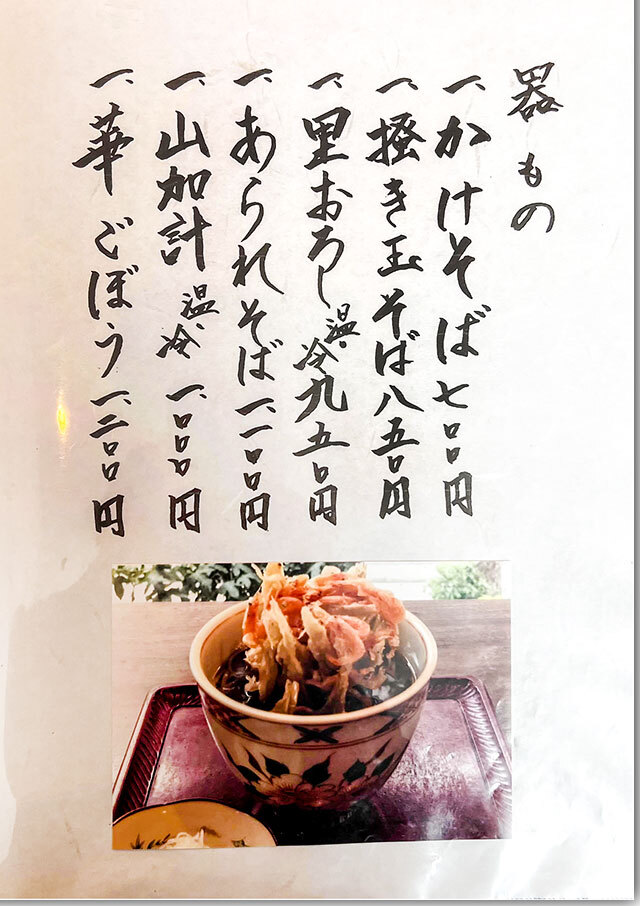 器もの
一、かけそば 七〇〇円
一、掻き玉そば 八五〇円
一、里おろし 温・冷 九五〇円
一、あられそば 一、一〇〇円
一、山加計 温・冷 一、〇〇〇円
一、華ごぼう 一、二〇〇円